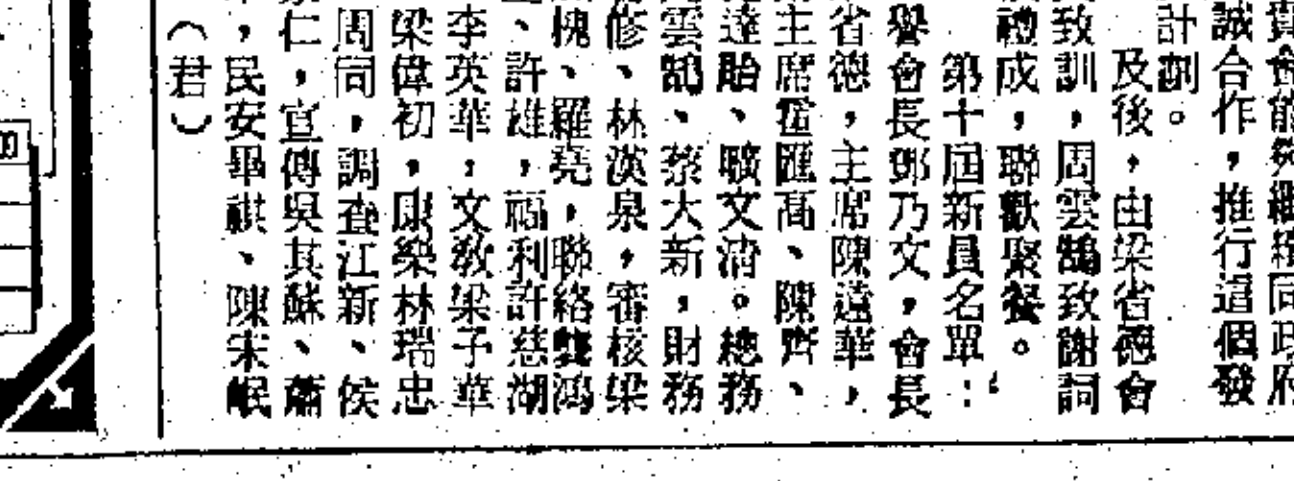 能夠繼續同政府
誠合作，推行這個發
計劃。
及後，由梁省德會
致訓，周雲鵠致謝詞
禮成，聯歡聚餐。
第十屆新員名單：
譽會長鄧乃文，會長
省德，主席陳遠華，
主席霍匯高、陳齊、
達貽、曠文清。總務
雲鵠、蔡大新，財務
修、林漢泉，審核梁
槐、羅堯，聯絡龔鴻
、許雄，福利許慈湖
李英華，文教梁子華
梁偉初，康樂林瑞忠
周同，調查江新、侯
仁，宣傳吳其蘇、蕭
，民安畢祺、陳宋岷
（君）